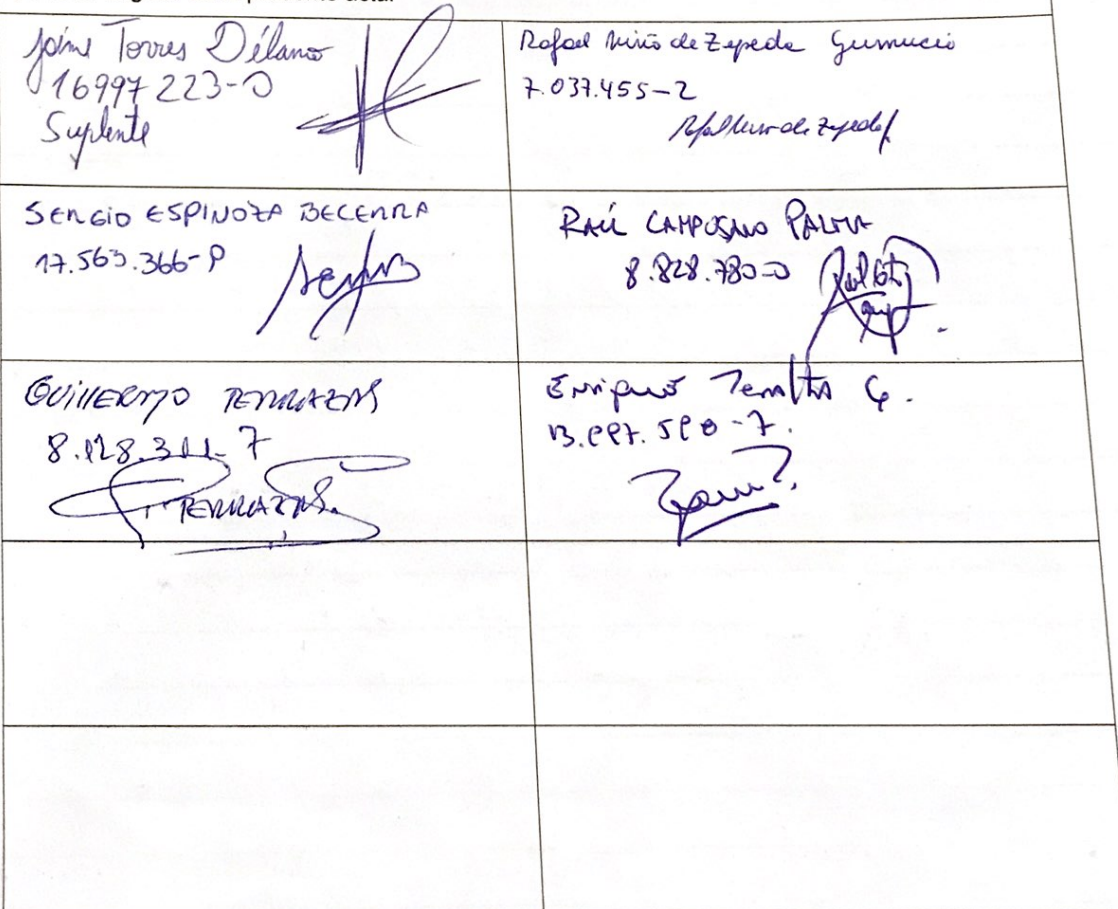 Jaime Torres Délano
16997223-0
Suplente
Rafael Niño de Zepeda Gumucio
7.037.455-2
Rafael Nino de Zepeda
SERGIO ESPINOZA BECERRA
17.563.366-9
Sergio
RAÚL CAMPOSANO PALMA
8.828.780-0
GUILLERMO TERRAZAS
8.128.311-7
G. TERRAZAS.
Enrique Peralta G.
13.997.590-7.